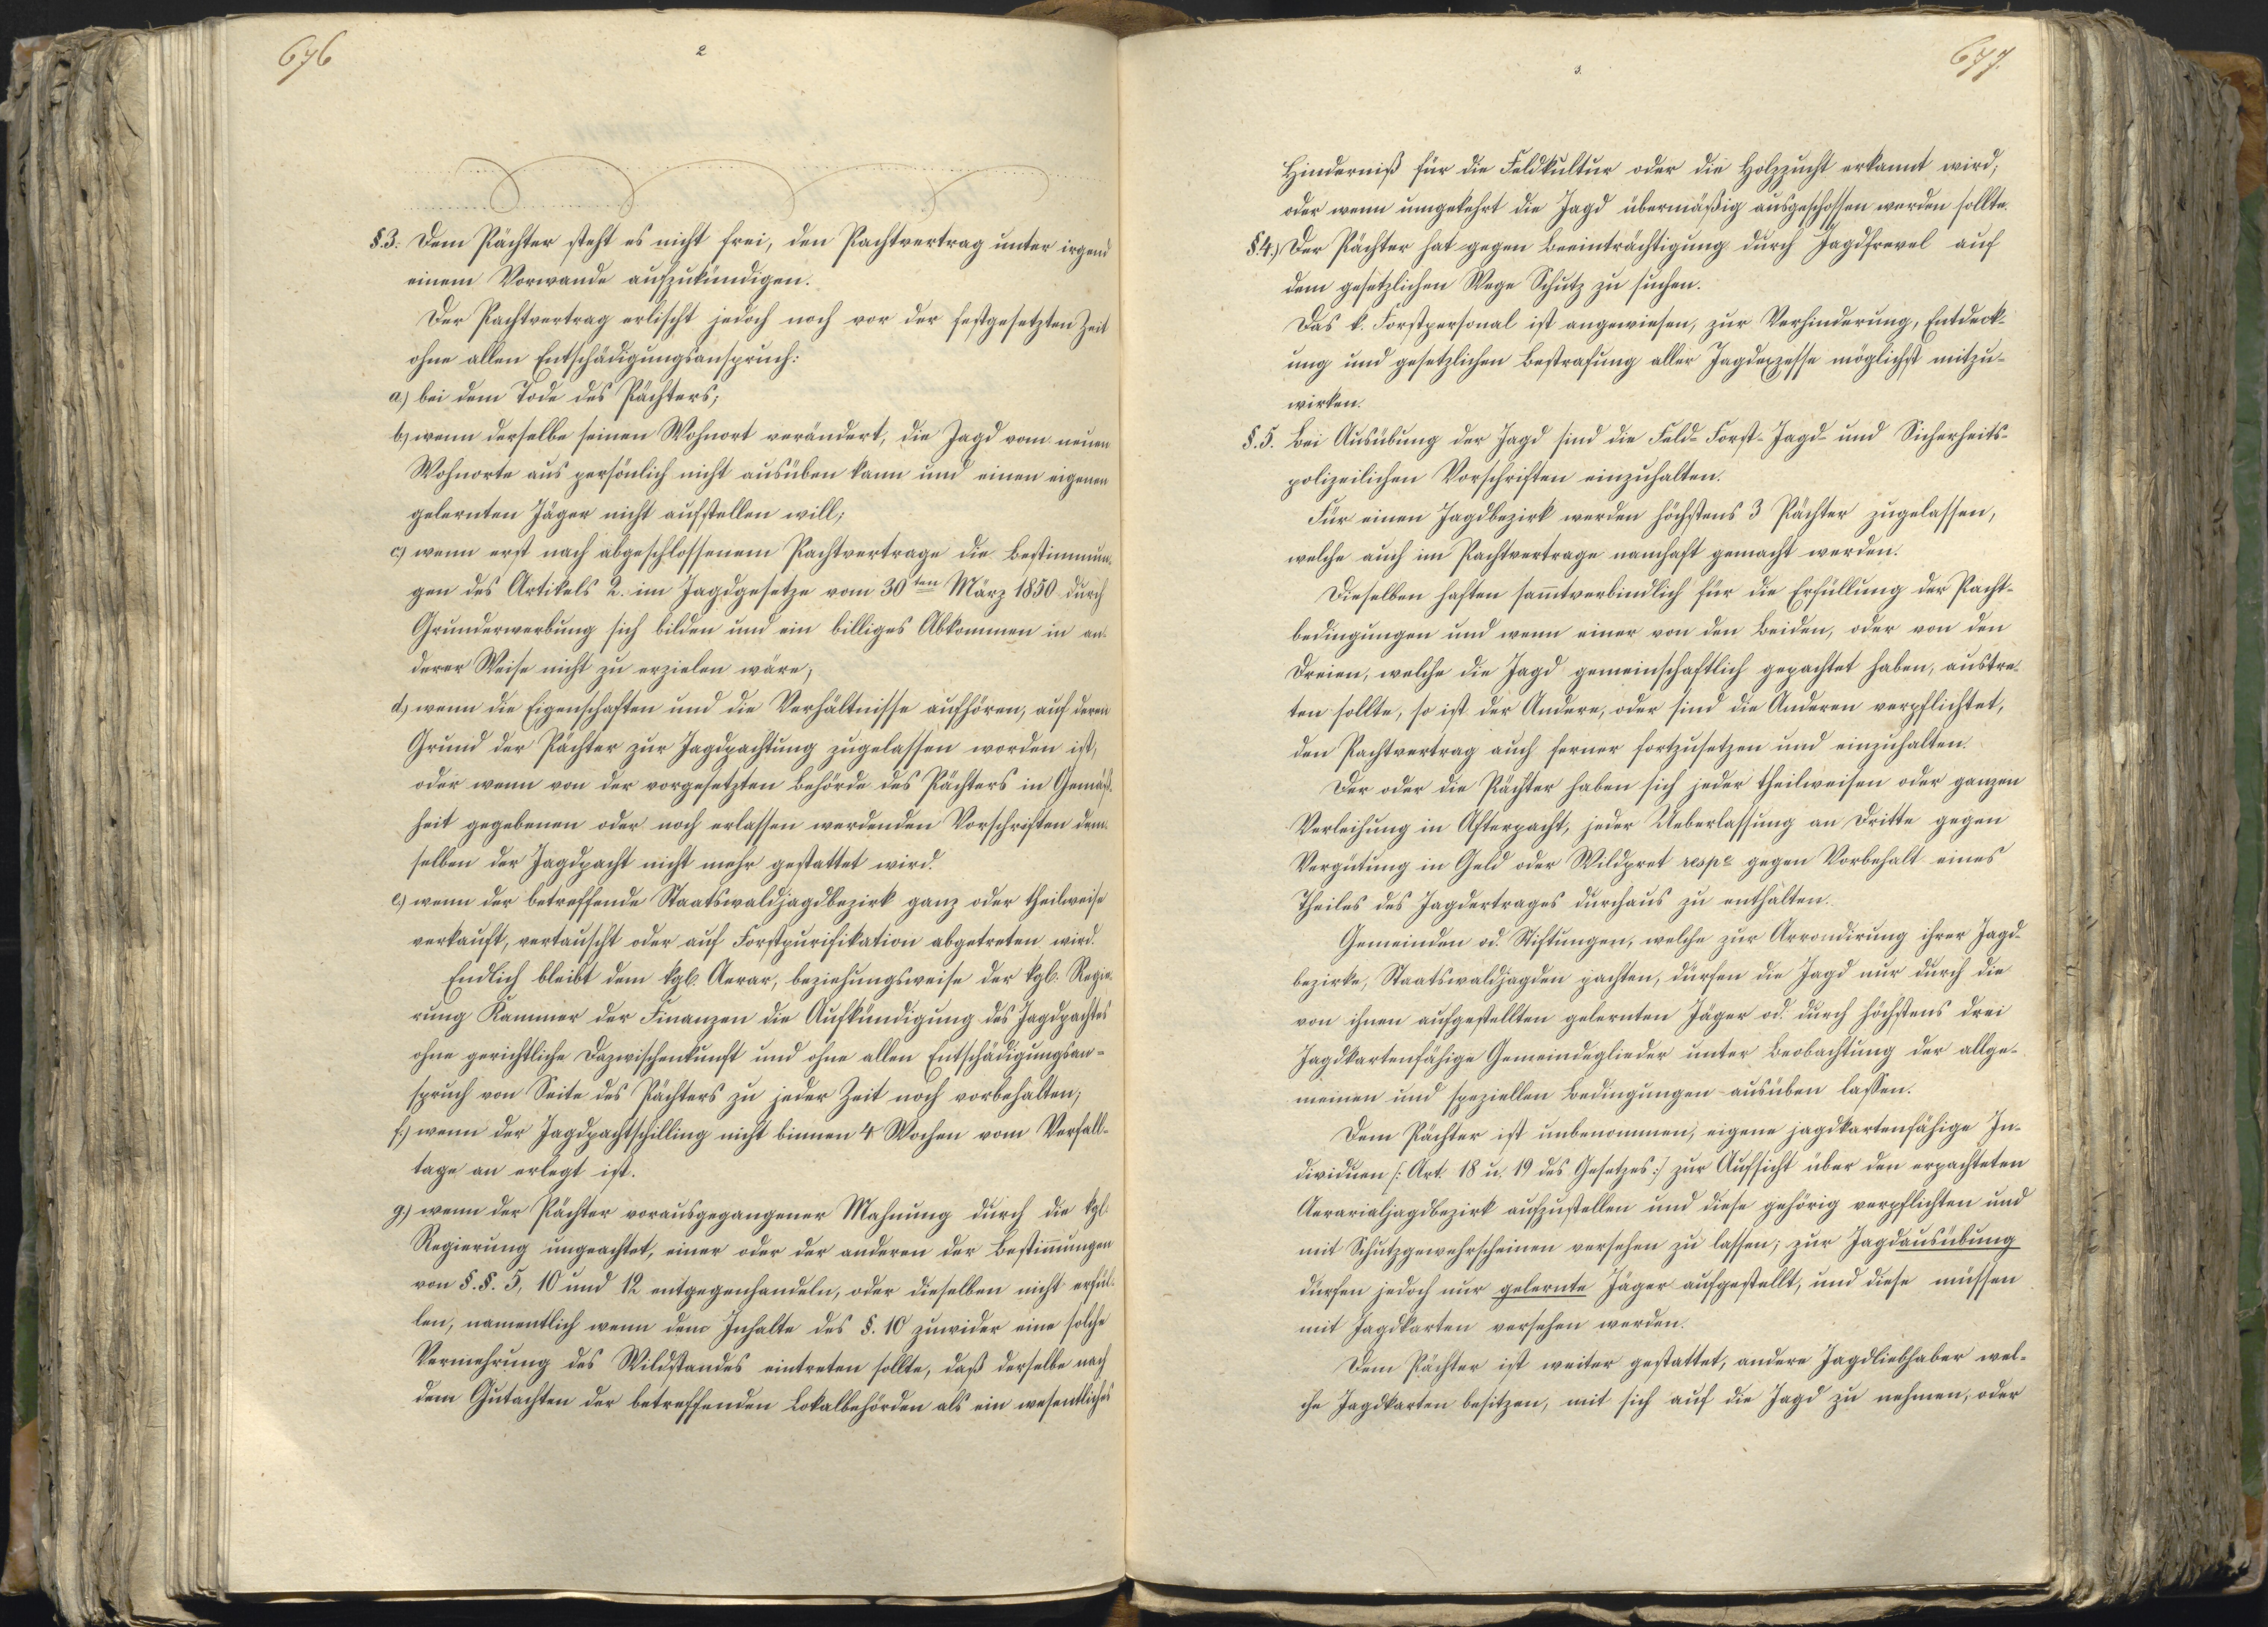 676
2
§.3. Dem Pächter steht es nicht frei, den Pachtvertrag unter irgend
einem Vorwande aufzukündigen.
Der Pachtvertrag erlischt jedoch noch vor der festgesetzten Zeit
ohne allen Entschädigungsanspruch:
a.) bei dem Tode des Pächters;
b.) wenn derselbe seinen Wohnort verändert, die Jagd vom neuen
Wohnorte aus persönlich nicht ausüben kann und einen eigenen
gelernten Jäger nicht aufstellen will;
c.) wenn erst nach abgeschlossenem Pachtvertrage die Bestimmun-
gen des Artikels 2. im Jagdgesetze vom 30ten März 1850 durch
Grunderwerbung sich bilden und ein billiges Abkommen in an-
derer Weise nicht zu erzielen wäre;
d.) wenn die Eigenschaften und die Verhältnisse aufhören, auf deren
Grund der Pächter zur Jagdpachtung zugelassen worden ist,
oder wenn von der vorgesetzten Behörde des Pächters in Gemäß-
heit gegebenen oder noch erlassen werdenden Vorschriften dem-
selben der Jagdpacht nicht mehr gestattet wird.
e.) wenn der betreffende Staatswaldjagdbezirk ganz oder theilweise
verkauft, vertauscht oder auf Forstpurifikation abgetreten wird.
Endlich bleibt dem kgl. Aerar, beziehungsweise der kgl. Regie-
rung Kammer der Finanzen die Aufkündigung des Jagdpachtes
ohne gerichtliche Dazwischenkunft und ohne allen Entschädigungsan-
spruch von Seite des Pächters zu jeder Zeit noch vorbehalten;
f.) wenn der Jagdpachtschilling nicht binnen 4 Wochen vom Verfall-
tage an erlegt ist.
g.) wenn der Pächter vorausgegangener Mahnung durch die kgl.
Regierung ungeachtet, einer oder der anderen der Bestimmungen
von §.§. 5, 10 und 12 entgegenhandeln, oder dieselben nicht erfül-
len, namentlich wenn dem Inhalte des §. 10 zuwider eine solche
Vermehrung des Wildstandes eintreten sollte, daß derselbe nach
dem Gutachten der betreffenden Lokalbehörden als ein wesentliches
677.
3.
Hinderniß für die Feldkultur oder die Holzzucht erkannt wird;
oder wenn umgekehrt die Jagd übermäßig ausgeschossen werden sollte.
§.4.) Der Pächter hat gegen Beeinträchtigung durch Jagdfrevel auf
dem gesetzlichen Wege Schutz zu suchen.
Das k. Forstpersonal ist angewiesen, zur Verhinderung, Entdeck-
ung und gesetzlichen Bestrafung aller Jagdexzesse möglichst mitzu-
wirken.
§. 5. Bei Ausübung der Jagd sind die Feld- Forst- Jagd- und Sicherheits-
polizeilichen Vorschriften einzuhalten.
Für einen Jagdbezirk werden höchstens 3 Pächter zugelassen,
welche auch im Pachtvertrage namhaft gemacht werden.
Dieselben haften sammtverbindlich für die Erfüllung der Pacht-
bedingungen und wenn einer von den Beiden, oder von den
Dreien, welche die Jagd gemeinschaftlich gepachtet haben, austre-
ten sollte, so ist der Andere, oder sind die Anderen verpflichtet,
den Pachtvertrag auch ferner fortzusetzen und einzuhalten.
Der oder die Pächter haben sich jeder theilweisen oder ganzen
Verleihung in Afterpacht, jeder Ueberlassung an Dritte gegen
Vergütung in Geld oder Wildpret respe gegen Vorbehalt eines
Theiles des Jagdertrages durchaus zu enthalten.
Gemeinden od. Stiftungen, welche zur Arrondirung ihrer Jagd-
bezirke, Staatswaldjagden pachten, dürfen die Jagd nur durch die
von ihnen aufgestellten gelernten Jäger od. durch höchstens drei
Jagdkartenfähige Gemeindeglieder unter Beobachtung der allge-
meinen und speziellen Bedingungen ausüben lassen.
Dem Pächter ist unbenommen, eigene jagdkartenfähige In-
dividuen /: Art. 18 u. 19 des Gesetzes :/ zur Aufsicht über den erpachteten
Aerarialjagdbezirk aufzustellen und diese gehörig verpflichten und
mit Schutzgewehrscheinen versehen zu lassen; zur Jagdausübung
dürfen jedoch nur gelernte Jäger aufgestellt, und diese müssen
mit Jagdkarten versehen werden.
Dem Pächter ist weiter gestattet, andere Jagdliebhaber wel-
che Jagdkarten besitzen, mit sich auf die Jagd zu nehmen, oder